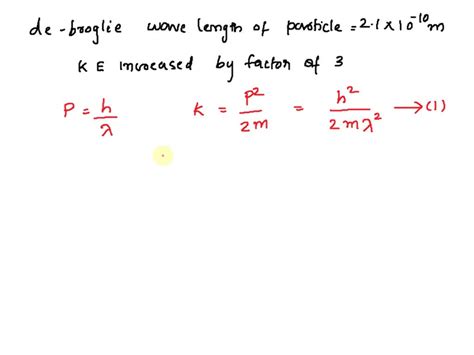 de-broglie wave length of particle = 2.1 × 10⁻¹⁰ m
K E increased by factor of 3
P = h/λ K = P²/2m = h²/2mλ² → (1)